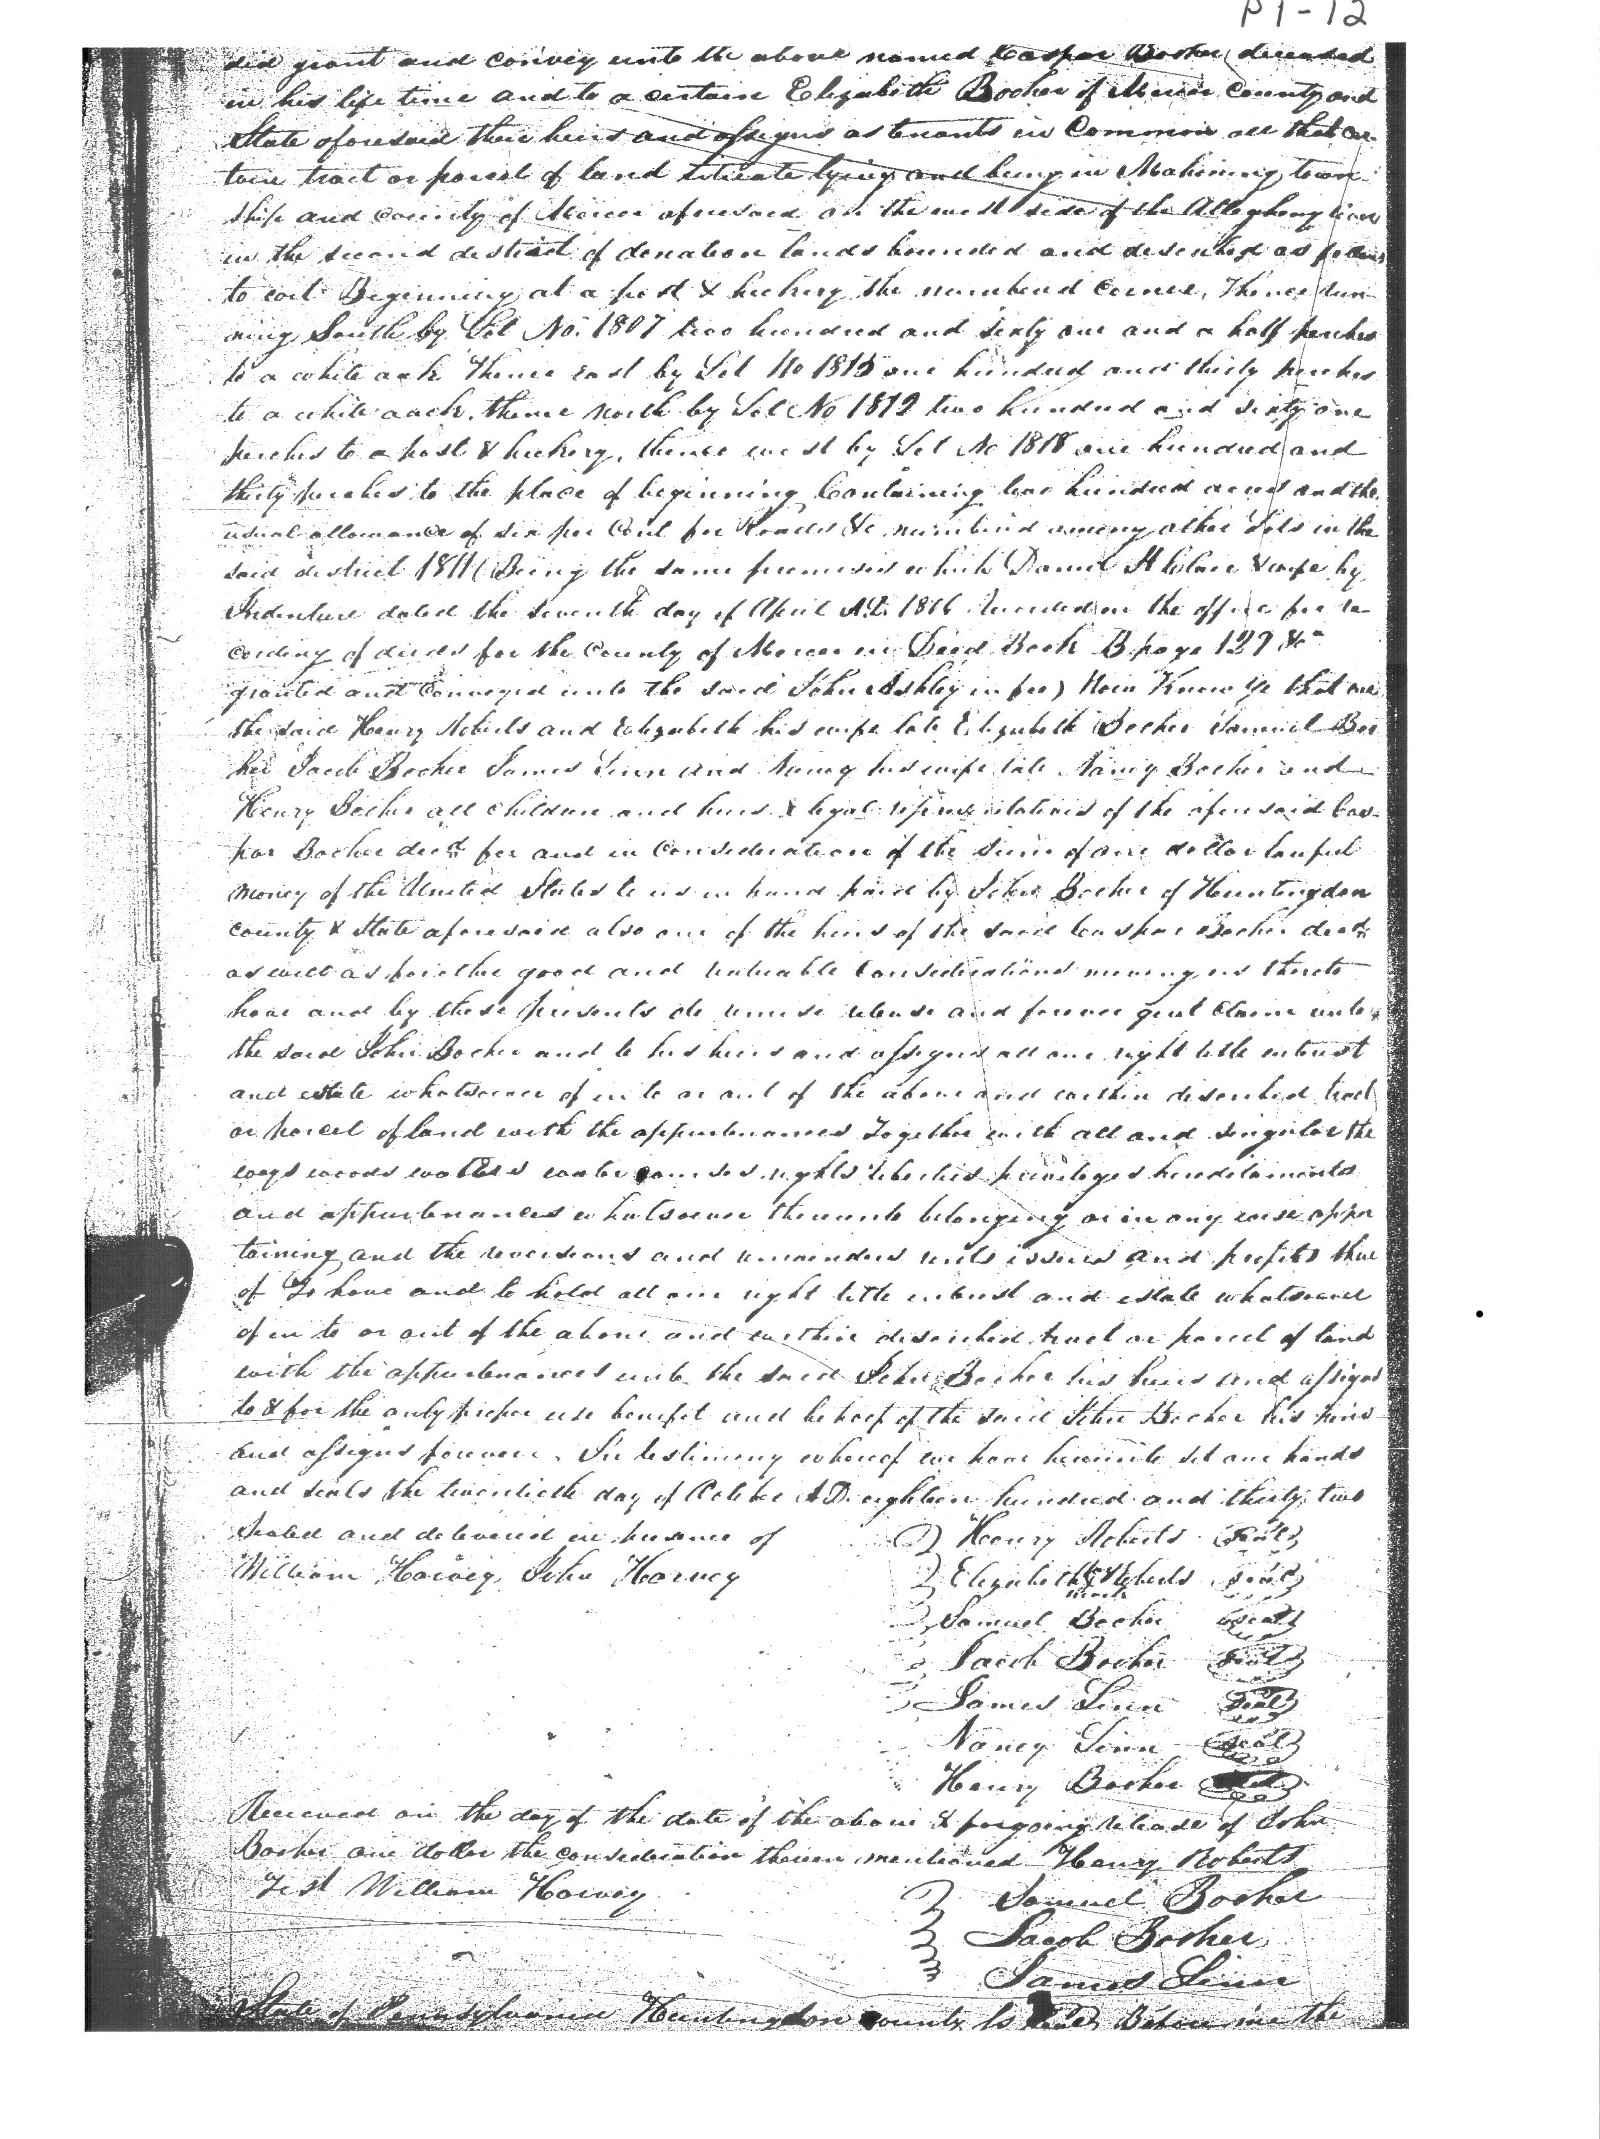 P1-12
did grant and convey unto the above named Caspar Booher deceased
in his life time and to a certain Elizabeth Booher of Mercer County and
State aforesaid their heirs and assigns as tenants in Common all that cer-
tain tract or parcel of land situate lying and being in Mahoning town-
ship and county of Mercer aforesaid on the west side of the Allegheny river
in the second district of donation lands bounded and described as follows
to wit Beginning at a post & hickory the numbered corner, Thence run-
ning South by Lot No. 1807 two hundred and sixty one and a half perches
to a white oak Thence east by Lot No 1815 one hundred and thirty perches
to a white oack, thence north by Lot No 1812 two hundred and sixty one
perches to a post & hickory, thence west by Lot No 1818 one hundred and
thirty perches to the place of beginning Containing two hundred acres and the
usual allowance of six per Cent for Roads &c numbered among other Lots in the
said district 1811 (Being the same premises which Daniel & wife by
Indenture dated the seventh day of April A.D. 1816 Recorded in the office for re
cording of deeds for the County of Mercer in Deed Book B page 127 &c
granted and Conveyed unto the said John Ashley in fee) Now Know ye that we
the said Henry Roberts and Elizabeth his wife late Elizabeth Booher Samuel Boo
her Jacob Booher James Linn and Nancy his wife late Nancy Booher and
Henry Booher all children and heirs & legal representatives of the aforesaid Cas-
par Booher decd for and in Consideration of the sum of one dollar lawful
money of the United States to us in hand paid by John Booher of Huntingdon
county & State aforesaid also one of the heirs of the said Caspar Booher decd
as well as for other good and valuable Considerations moving us thereto
have and by these presents do remise release and forever quit Claim unto
the said John Booher and to his heirs and assigns all our right title interest
and estate whatsoever of in to or out of the above and within described tract
or parcel of land with the appurtenances Together with all and singular the
ways woods waters water courses rights liberties privileges hereditaments
and appurtenances whatsoever thereunto belonging or in any wise apper
taining and the reversions and remainders rents issues and profits there
of To have and to hold all our right title interest and estate whatsoever
of in to or out of the above and within described tract or parcel of land
with the appurtenances unto the said John Booher his heirs and assigns
to & for the only proper use benefit and behoof of the said John Booher his heirs
and assigns forever. In testimony whereof we have hereunto set our hands
and seals the twentieth day of October A.D. eighteen hundred and thirty two
Sealed and delivered in presence of
William Harvey, John Harvey
Henry Roberts seal
Elizabeth Roberts seal
mark
Samuel Booher seal
Jacob Booher seal
James Linn seal
Nancy Linn seal
Henry Booher seal
Received on the day of the date of the above & forgoing release of John
Booher one doller the consideration therein mentioned Henry Roberts
Test William Harvey
Samuel Booher
Jacob Booher
James Linn
State of Pennsylvania Huntingdon County Before me the